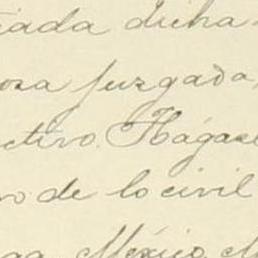 iada dicha
osa juzgada,
ctivo. Hágase
o de lo civil
México, M